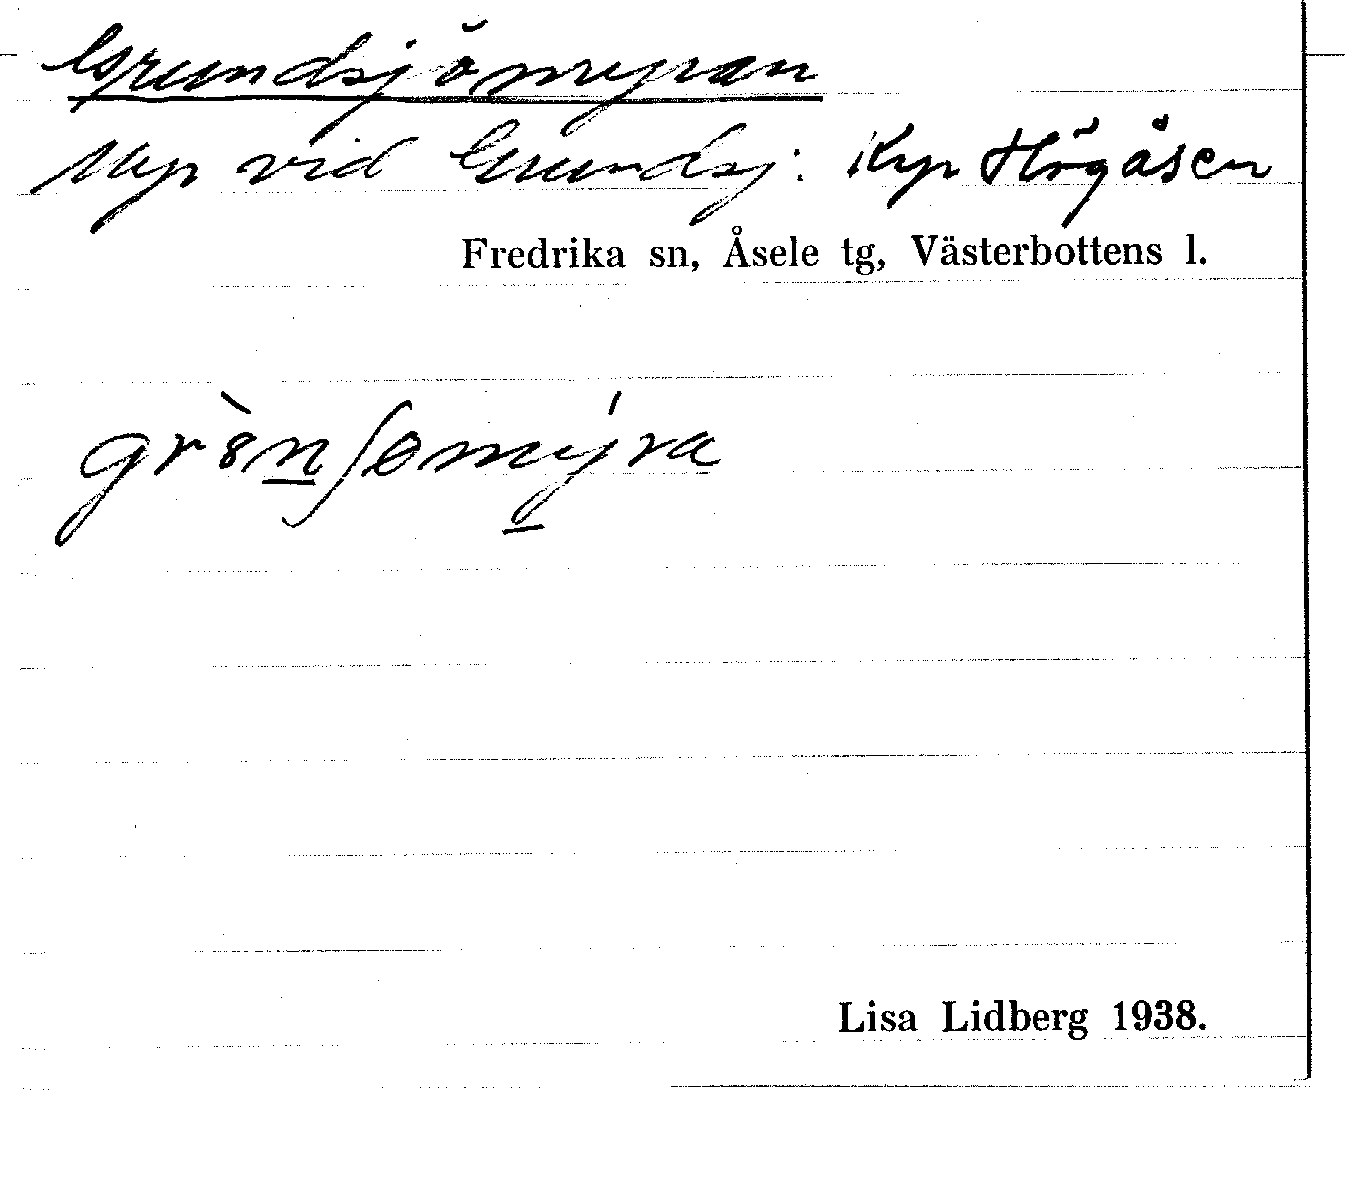 Grundsjömyran
Myr vid Grundsj. Kyr Högåsen
Fredrika sn, Åsele tg, Västerbottens l.
Lisa Lidberg 1938.